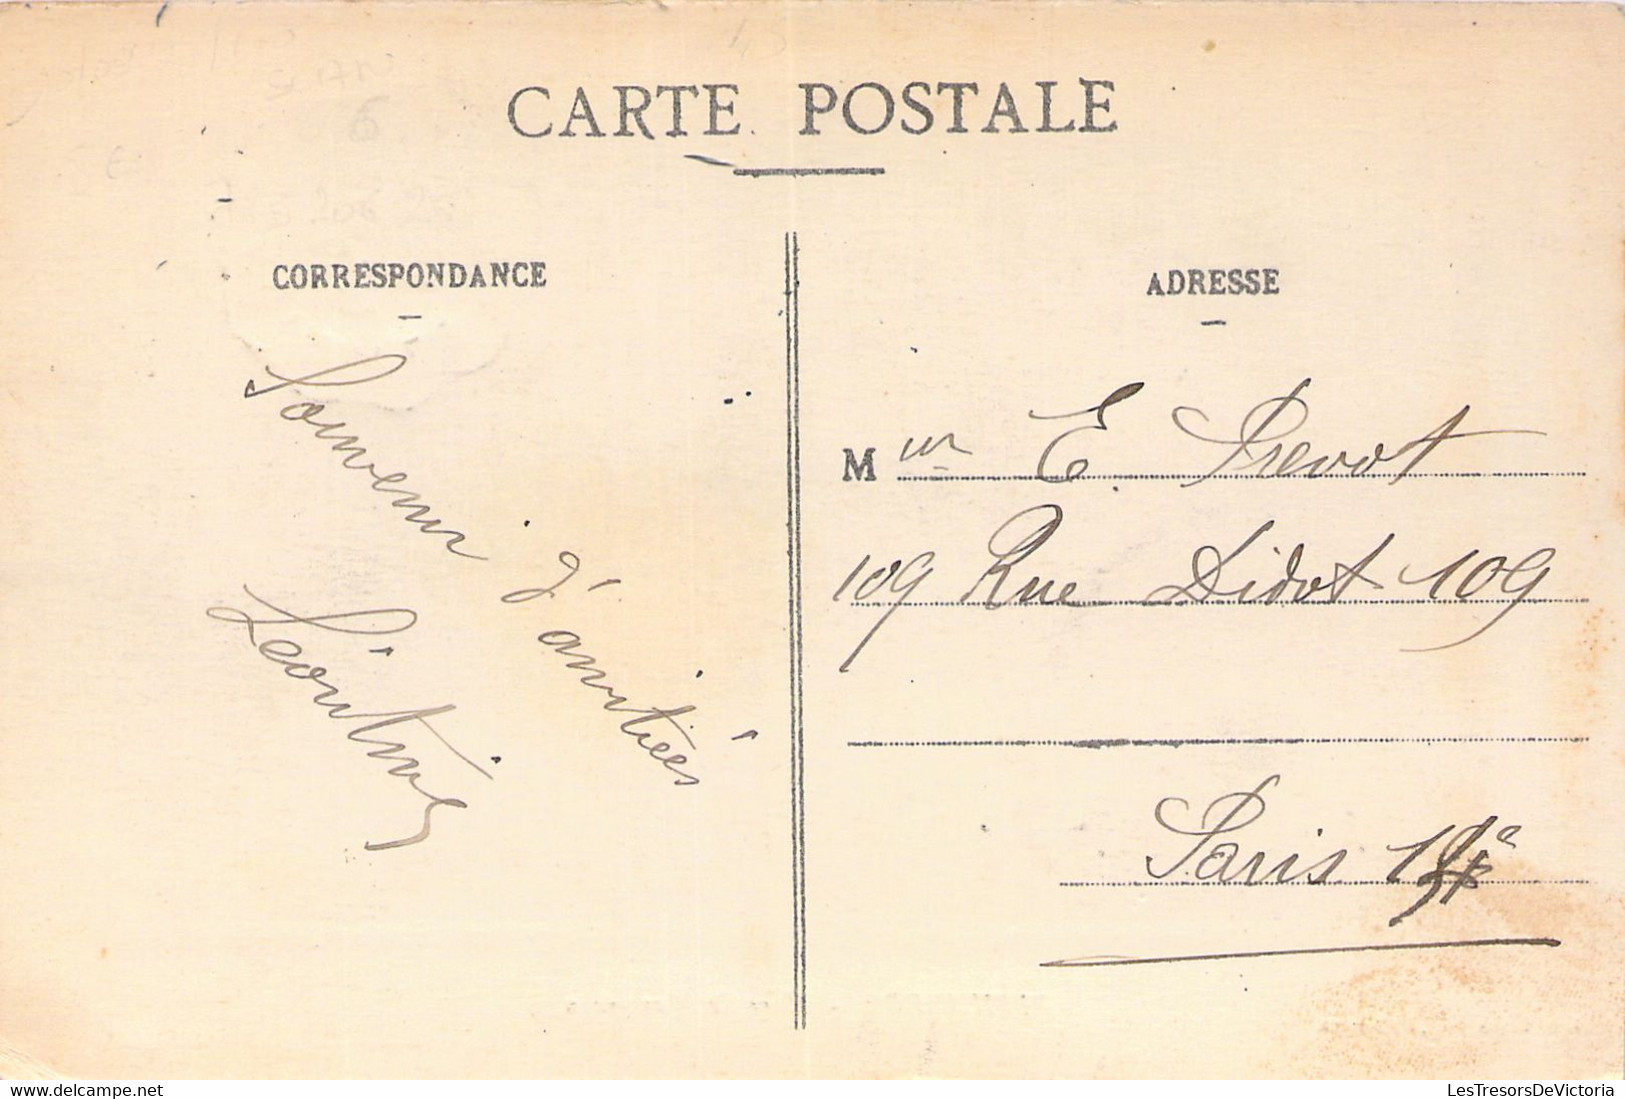 CARTE POSTALE
CORRESPONDANCE
Souvenir d'amitiés
Léontine
ADRESSE
Mur E. Prevot
109 Rue Didot 109
Paris 14e
LesTresorsDeVictoria